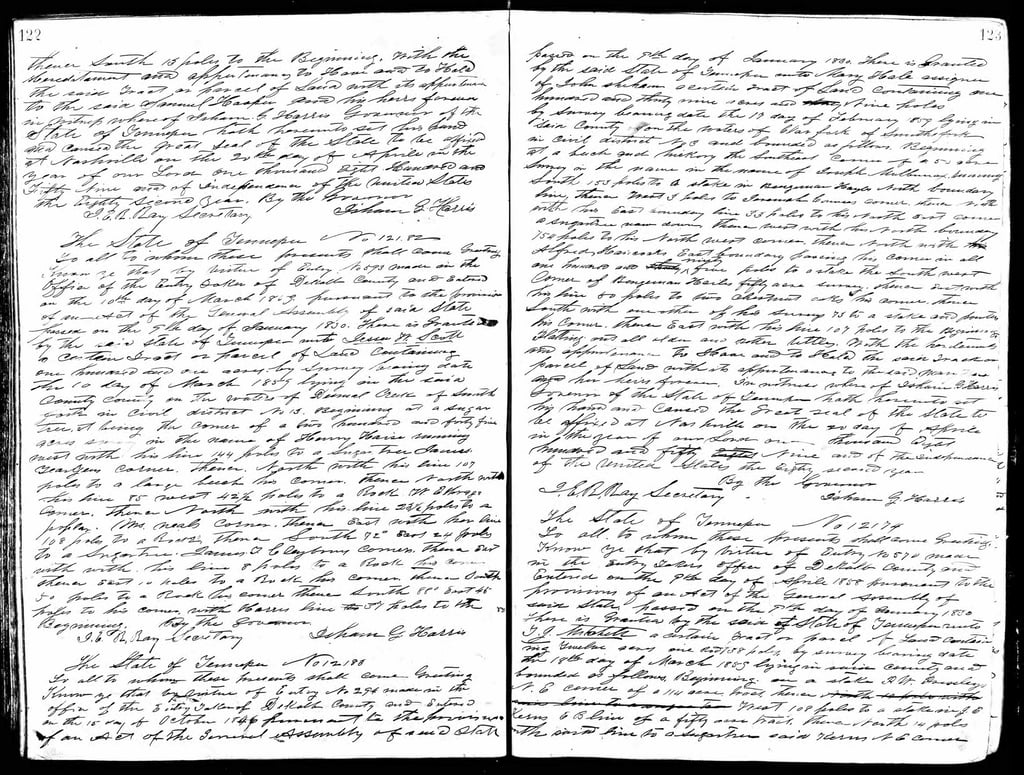 122
thence South 15 poles to the Beginning. With the
Hereditament and appurtenances to Have and to Hold
the said Tract or parcel of Land with its appurtenan
to the said Samuel Hooper and his heirs forever
in witness whereof Isham G. Harris Governor of the
State of Tennessee hath hereunto set his hand
and caused the great Seal of the State to be affixed
at Nashville on the 20th day of April in the
year of our Lord one thousand Eight Hundred and
Fifty Nine and of Independence of the United States
the Eighty Second year. By the Governor
J.E.R. Ray Secretary Isham G. Harris
The State of Tennessee No 12182
To all to whom these presents shall come Greeting
Know ye that by Virtue of Entry No 593 made in the
Office of the Entry Taker of DeKalb County and Entered
on the 10th day of March pursuant to the provision
of an Act of the General Assembly of said State
passed on the 9th day of January 1830. There is Granted
by the said State of Tennessee unto Jesse W. Scott
a certain Tract or parcel of Land Containing
one hundred and one acres by Survey bearing date
the 10 day of March 1859 lying in the said
County County on the waters of Dismal Creek of Smith
fork in Civil district No 13. Beginning at a sugar
tree, it being the corner of a two hundred and forty five
acres in the name of Henry Harris running
west with his line 144 poles to a Sugar tree James
corner. thence North with his line 107
poles to a large beech his corner. thence North with
his line 85 west 42½ poles to a Rock
Corner. thence North with his line 23½ poles to a
poplar. Mrs. Neals Corner. thence East with her line
108 poles to a Rock, thence South 72° East 24 poles
to a Sugartree. James Clayborns corner, thence East
with with his line 8 poles to a Rock his corner
thence East 10 poles to a Rock his corner thence South
poles to a Rock his corner thence South 88° East 45
poles to his corner, with Harris line 31 poles to the
Beginning. By the Governor
J.E.R. Ray Secretary Isham G. Harris
The State of Tennessee No 12183
To all to whom these Presents shall come Greeting
Know ye that by virtue of Entry No 294 made in the
office of the Entry Taker of DeKalb County and Entered
on the 15 day of October 1846 pursuant to the provisions
of an Act of the General Assembly of said State
123
passed on the 9th day of January 1830. There is Granted
by the said State of Tennessee unto Mary Hale assignee
of John a certain tract of Land containing one
hundred and thirty nine acres and Nine poles
by Survey bearing date the 19 day of February 1859 lying in
said County on the waters of Clear fork of Smiths fork
in Civil district No 6 and bounded as follows. Beginning
at a beech and hickory the Southeast Corner of a 50 acre
Survey in the name in the name of Joseph running
South 153 poles to a stake in Benjamin Hayes North boundary
line, thence West 3 poles to Jeremiah corner, thence North
with his East boundary line 33 poles to his North East corner
a sugartree now down, thence west with his North boundary
150 poles to his North west corner, thence North with
Alfred Hancocks East boundary passing his corner in all
one hundred and five poles to a stake the South west
Corner of Benjamin Hales fifty acre survey. thence East with
his line 80 poles to two Chestnut oaks his corner, thence
South with one other of his survey 75 to a stake and pointers
his Corner. thence East with his line 107 poles to the Beginning
Platting out all older and better titles. With the hereditaments
and appurtenances to Have and to Hold the said tract or
parcel of Land with its appurtenances to the said Mary Hale
and her heirs forever. In witness whereof Isham G Harris
Governor of the State of Tennessee hath hereunto set
his hand and Caused the Great seal of the State to
be affixed at Nashville on the 20 day of April
in the year of our Lord one thousand Eight
hundred and fifty Nine and of the Independence
of the United States the Eighty second year
By the Governor
J.E.R. Ray Secretary. Isham G. Harris
The State of Tennessee No 12174
To all to whom these presents shall come Greeting.
Know ye that by Virtue of Entry No 570 made
in the Entry Takers office of DeKalb County and
Entered on the 9th day of April 1858 pursuant to the
provisions of an Act of the General Assembly of
said State passed on the 9th day of January 1830
there is Granted by the said State of Tennessee unto
T.J. Mitchell a certain Tract or parcel of Land contain
ing Twelve acres and 58 poles by survey bearing date
the 19th day of March 1859 lying in said county and
bounded as follows. Beginning on a stake
N.E. corner of a 114 acre tract, thence North
West 108 poles to a stake in
Kerns E.B. line of a fifty acre tract. thence North 14 poles
with said line to a sugartree said Kerns N.E. corner